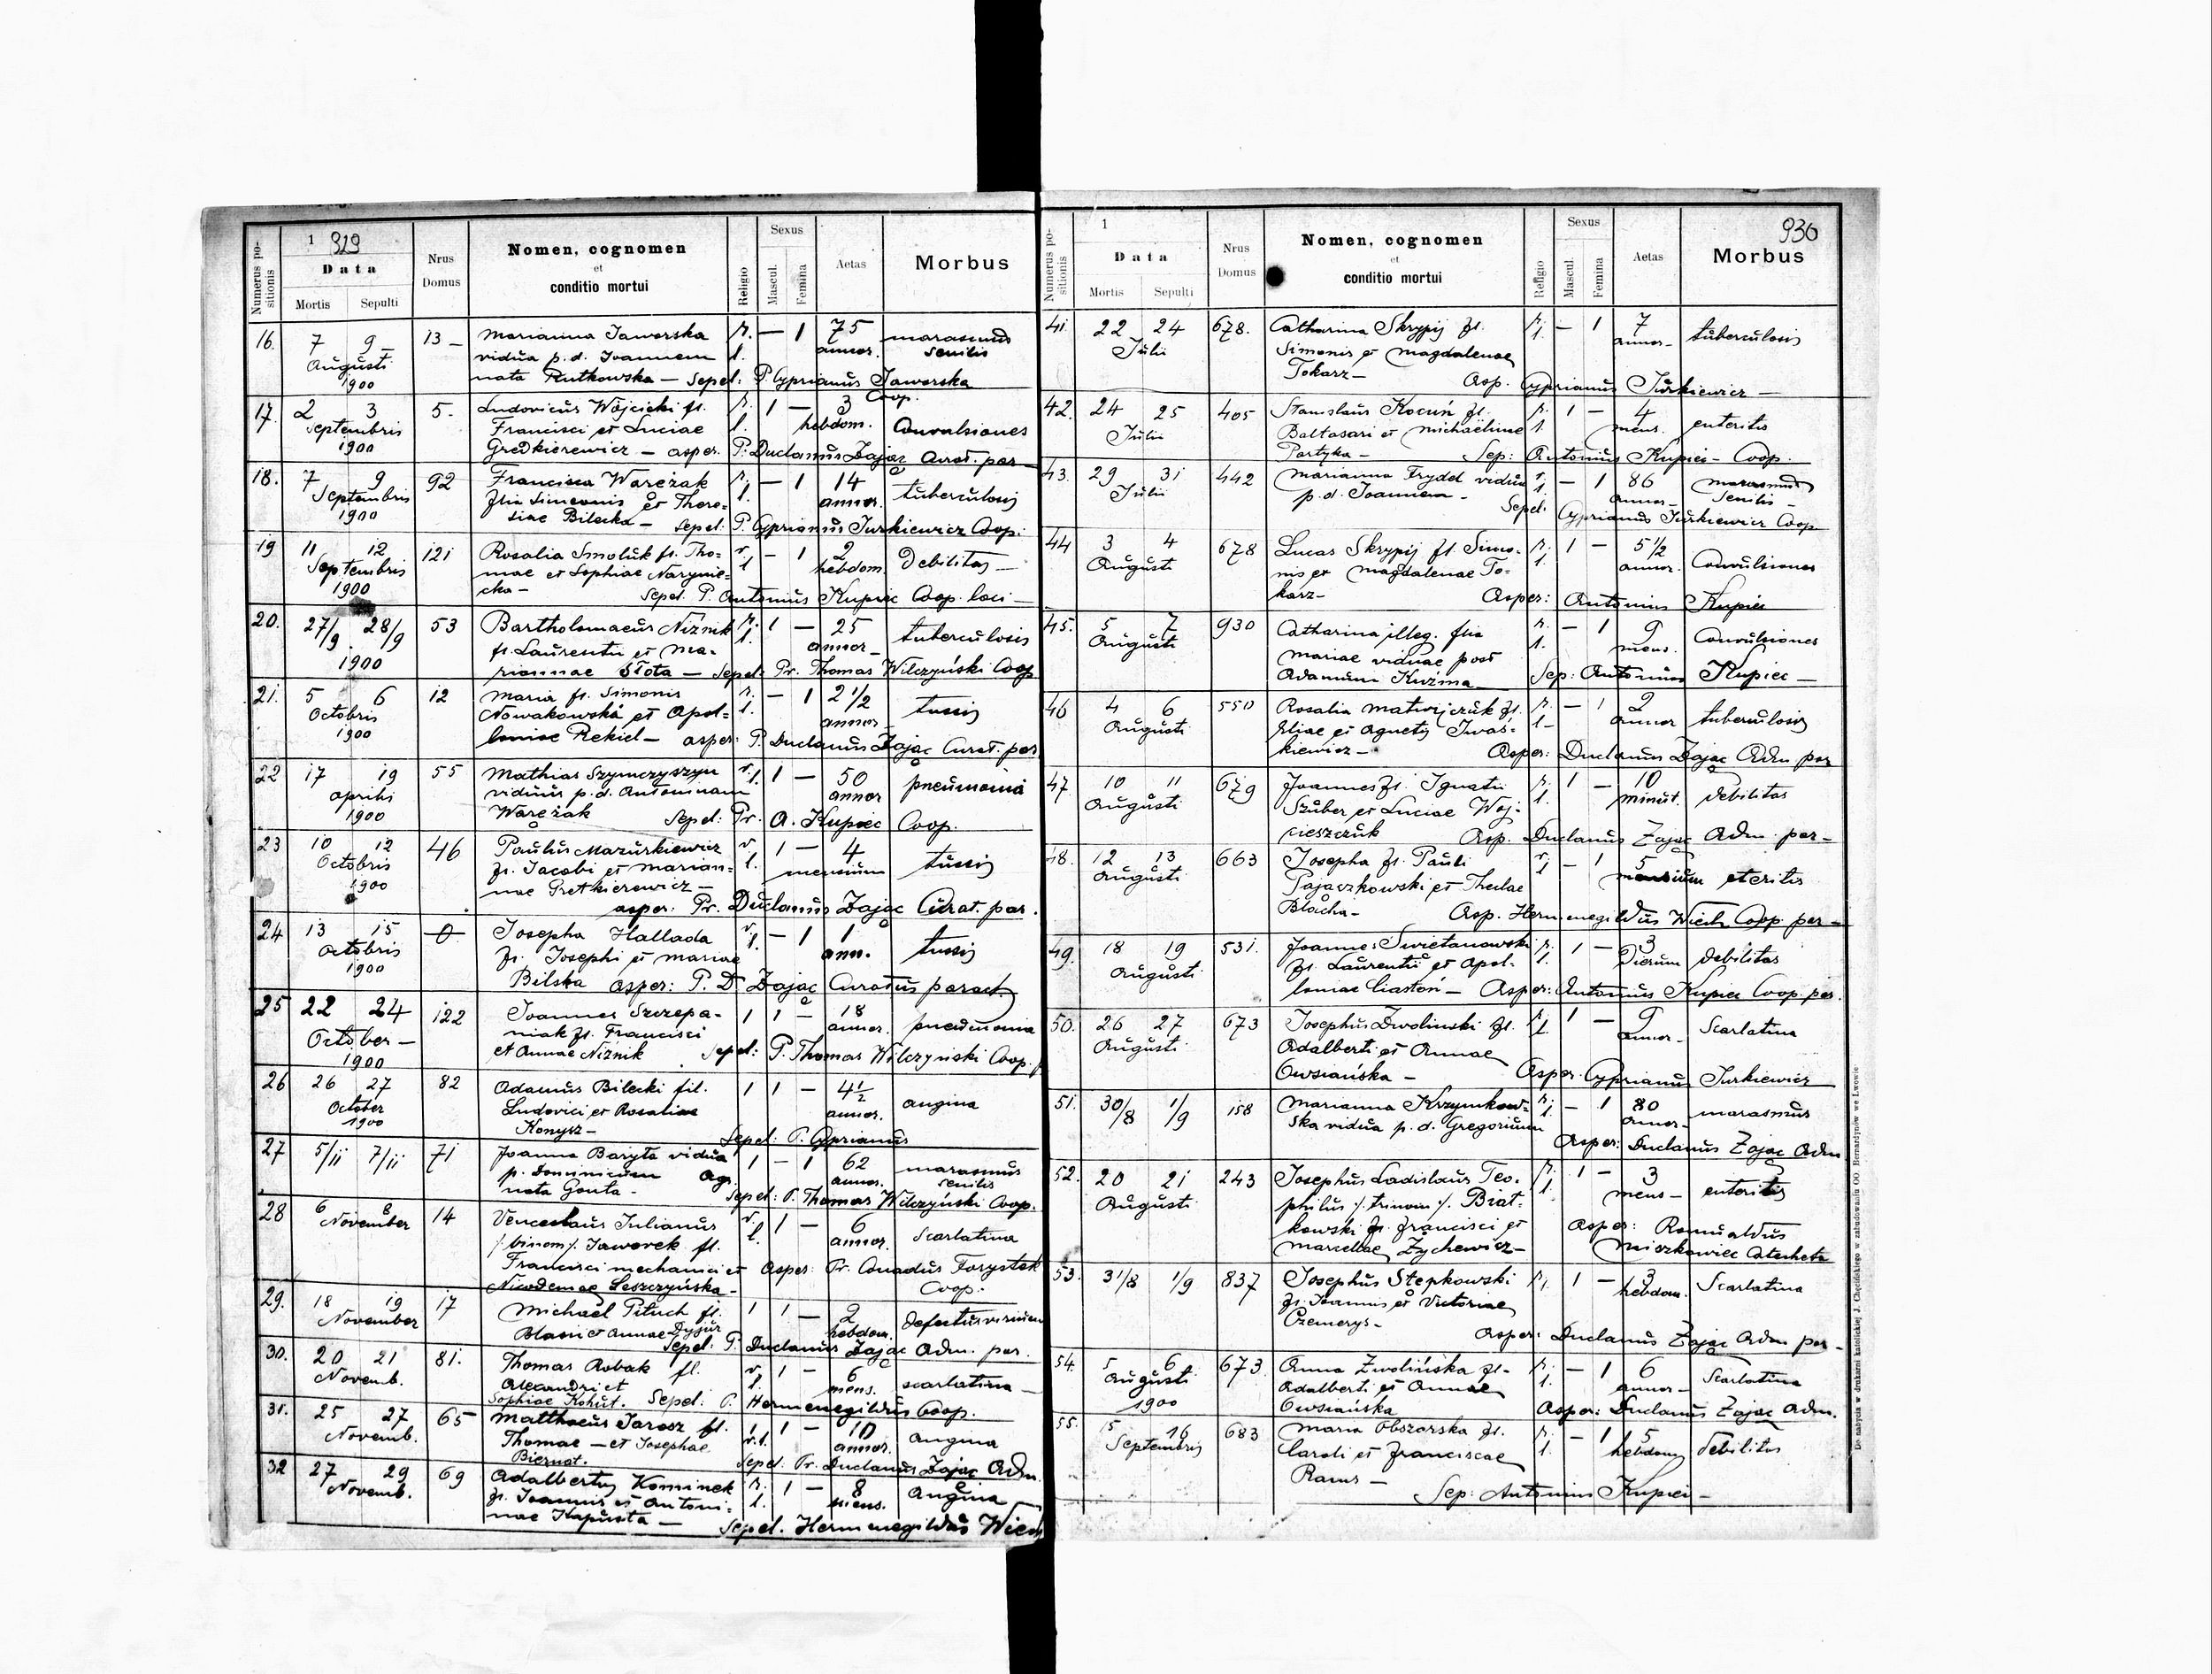 Numerus positionis
1 929
Data
Mortis Sepulti
Nrus Domus
Nomen, cognomen
et
conditio mortui
Religio
Sexus
Mascul. Femina
Aetas
Morbus
16. 7 9 13 – Marianna Jaworska r. – 1 75 marasmus
Augusti vidua p. d. Joannem l. annor. senilis
1900 nata Rutkowska – Sepel: P. Cyprianus Jaworska
Coop.
17. 2 3 5. Ludovicus Wojcicki fl. r. 1 – 3
Septembris Francisci et Luciae l. hebdom. Convulsiones
1900 Gredkierewicz – asper. P: Duclanus Zając Curat. par –
18. 7 9 92 Francisca Wareżak r. – 1 14 tuberculosis
Septembris filia Simeonis et There- l. annor.
1900 siae Bilecka – Sepel: P. Cyprianus Jurkiewicz Coop:
19 11 12 121 Rosalia Smoluk fl. Tho- r. – 1 2 Debilitas –
Septembris mae et Sophiae l. hebdom.
1900 cka – Sepel. P. Antonius Kupiec Coop. loci –
20. 27/9 28/9 53 Bartholomaeus Niżnik r. 1 – 25 tuberculosis
fl. Laurentii et Ma- l. annor –
1900 riannae Słota – Sepel: Pr. Thomas Wilczyński Coop
21. 5 6 12 Maria fl. Simonis r. – 1 2 1/2 tussis
Octobris Nowakowska et Apol- l. annor –
1900 loniae Rekiel – asper: P. Duclanus Zając Curat. par
22 17 19 55 Mathias Szymczyszyn r. l. 1 – 50 pneumonia
Aprilis viduus p. d. Antoninam annor
1900 Wareżak Sepel: Pr. A. Kupiec Coop.
23 10 12 46 Paulus Mazurkiewicz r. 1 – 4 tussis
Octobris fl. Jacobi et Marian- l. mensium
1900 nae Gretkierewicz –
asper. Pr. Duclanus Zając Curat. par.
24 13 15 0 Josepha Hallada r. – 1 1 tussis
Octobris fl. Josephi et Mariae l. ann.
1900 Bilska asper: P. D. Zając Curatus paroch.
25 22 24 122 Joannes Szczepa- 1 1 – 18 pneumonia
October – niak fl. Francisci annor.
1900 et Annae Niżnik Sepel: P. Thomas Wilczyński Coop.
26 26 27 82 Adamus Bilecki fil. 1 1 – 4 1/2 angina
October Ludovici et Rosaliae annor.
1900 Konysz – Sepel: P. Cyprianus
27 5/11 7/11 71 Joanna Baryła vidua 1 – 1 62 marasmus
p. Dominicum Agr. annor. senilis
nata Gonta – Sepel: P. Thomas Wilczyński Coop.
28 6 8 14 Venceslaus Julianus r. 1 – 6 Scarlatina
November /:binom:/. Jaworek fl. l. annor.
Francisci mechanici et Asper: Pr. Conradus Forystek
Nicodemae Leszczyńska – Coop.
29. 18 19 17 Michael Pituch fl. 1 1 – 2 defectus virium
November Blasii et Annae Dyjur hebdom.
Sepel: P. Duclanus Zając Adm. par.
30. 20 21 81. Thomas Robak fl. r. 1 – 6 scarlatina –
Novemb. Alexandri et l. mens.
Sophiae Kohut. Sepel: P. Hermenegildus Coop.
31. 25 27 65 Matthaeus Jarosz fl. 1 – 10 angina
Novemb. Thomae – et Josephae r. l. annor.
Biernat. Sepel. Pr. Duclanus Zając Adm.
32 27 29 69 Adalbertus Kominek r. 1 – 8 Angina
Novemb. fl. Joannis et Antoni- l. mens.
nae Kapusta – Sepel. Hermenegildus
Numerus positionis
1
Data
Mortis Sepulti
Nrus Domus
Nomen, cognomen
et
conditio mortui
Religio
Sexus
Mascul. Femina
Aetas
936
Morbus
41. 22 24 678. Catharina Skrypij fl. r. – 1 7 tuberculosis
Julii Simonis et Magdalenae l. annor –
Tokarz – Asp. Cyprianus Jurkiewicz –
42. 24 25 405 Stanislaus Kocuń fl. r. 1 – 4 enteritis
Julii Baltasari et Michaëlinae l. mens.
Partyka – Sep: Antonius Kupiec – Coop.
43. 29 31 442 Marianna Frydel vidua r. – 1 86 marasmus
Julii p. d. Joannem – l. annor – senilis –
Sepel. Cyprianus Jurkiewicz Coop
44 3 4 678 Lucas Skrypij fl. Simo- r. 1 – 5 1/2 Convulsiones
Augusti nis et Magdalenae To- l. annor.
karz – Asper: Antonius Kupiec
45. 5 7 930 Catharina illeg. filia r. – 1 9 Convulsiones
Augusti Mariae viduae post l. mens.
Adamum Kuźma – Sep: Antonius Kupiec –
46 4 6 550 Rosalia Matwijczuk fl. r. – 1 2 tuberculosis
Augusti Eliae et Agnetis Iwaś- l – annor
kiewicz – Asper: Duclanus Zając Adm par
47. 10 11 679 Joannes fl. Ignatii r. 1 – 10 debilitas
Augusti Szuber et Luciae Woj- l. minut.
cieszczuk Asp. Duclanus Zając Adm. par –
48. 12 13 663 Josepha fl. Pauli r. – 1 5 eteritis
Augusti Pajaczkowski et Theclae l mensium
Blacha – Asp. Hermenegildus Wiech Coop. par –
49. 18 19 531. Joannes Swietanowski r. 1 – 3 debilitas
Augusti fl. Laurentii et Apol- l. Dierum
loniae Ciastoń – Asper: Antonius Kupiec Coop. par.
50. 26 27 673 Josephus Zwolinski fl. r. 1 – 9 Scarlatina
Augusti Adalberti et Annae l. annor –
Owsiańska – Asper. Cyprianus Jurkiewicz
51. 30/8 1/9 158 Marianna Krzymkow- r. – 1 80 marasmus
ska vidua p. d. Gregorium l. annor –
Asper: Duclanus Zając Adm
52. 20 21 243 Josephus Ladislaus Teo- r. 1 – 3 enteritis
Augusti philus /:trinom:/. Biał- l. mens –
kowski fl. Francisci et Asper: Romualdus
Marcellae Zychewicz – Mieszkowiec Catecheta
53. 31/8 1/9 837 Josephus Stepkowski r. 1 – 3 Scarlatina
fl. Joannis et Victoriae hebdom.
Czemerys – Asper: Duclanus Zając Adm par –
54. 5 6 673 Anna Zwolińska fl – r. – 1 6 Scarlatina
Augusti Adalberti et Annae l. annor –
1900 Owsiańska Asper: Duclanus Zając Adm.
55. 15 16 683 Maria Obszarska fl. r. – 1 5 debilitas
Septembris Caroli et Franciscae l. hebdom
Raus –
Sep: Antonius Kupiec –
Do nabycia w drukarni katolickiej J. Chęcińskiego w zabudowaniu OO. Bernardynów we Lwowie